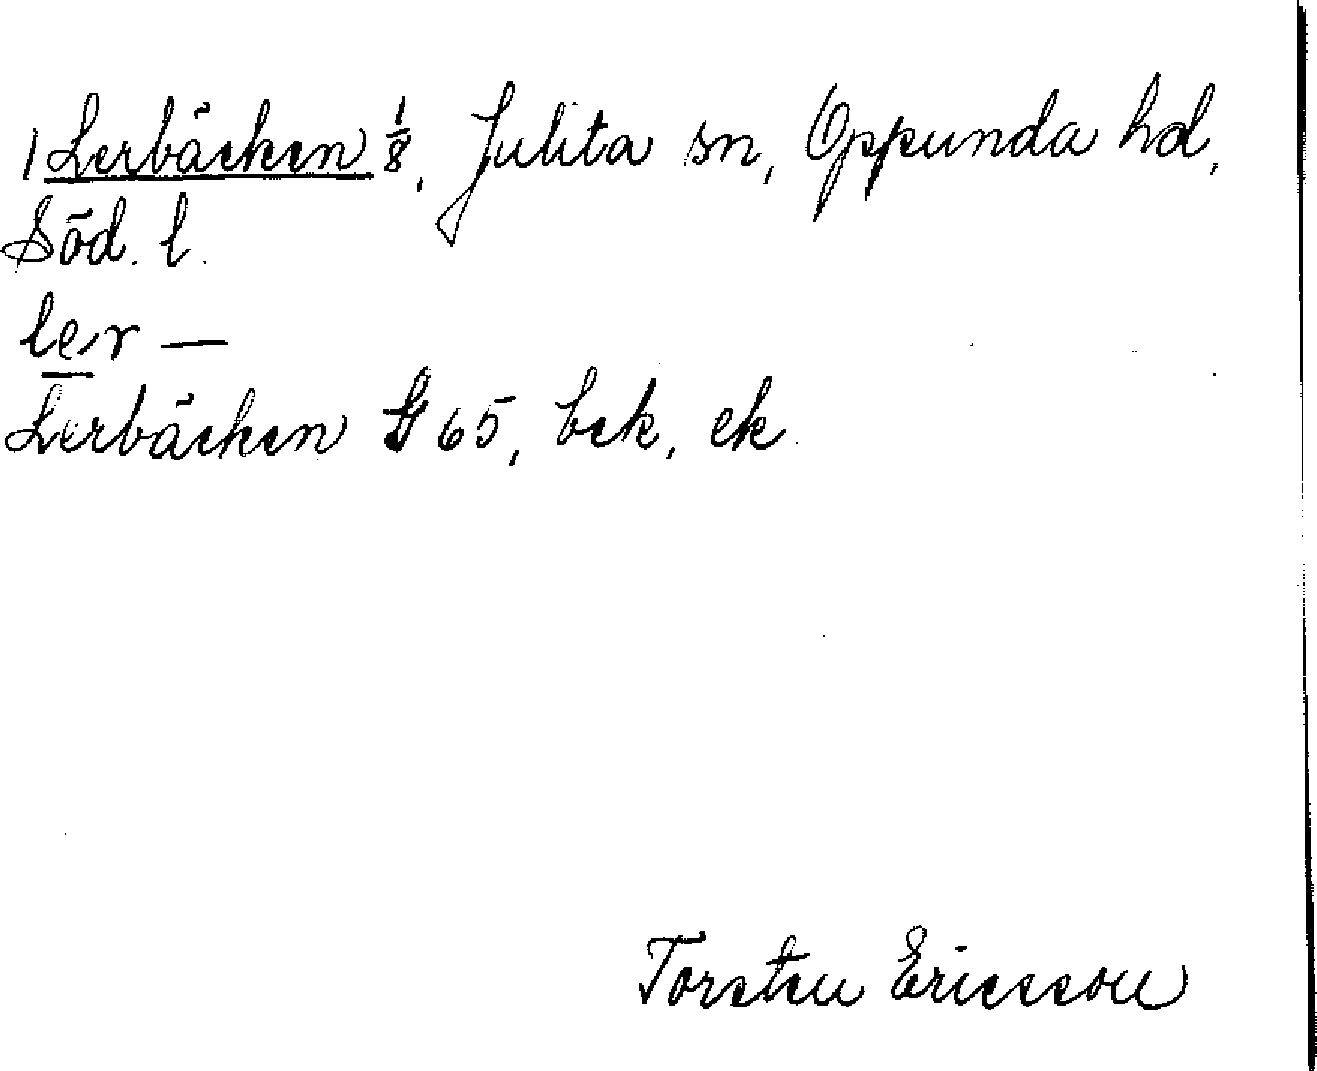 1 Lerbäcken 1/8, Julita sn, Oppunda hd,
Söd. l.
ler —
Lerbäcken G 65, bek, ek.
Torsten Ericsson